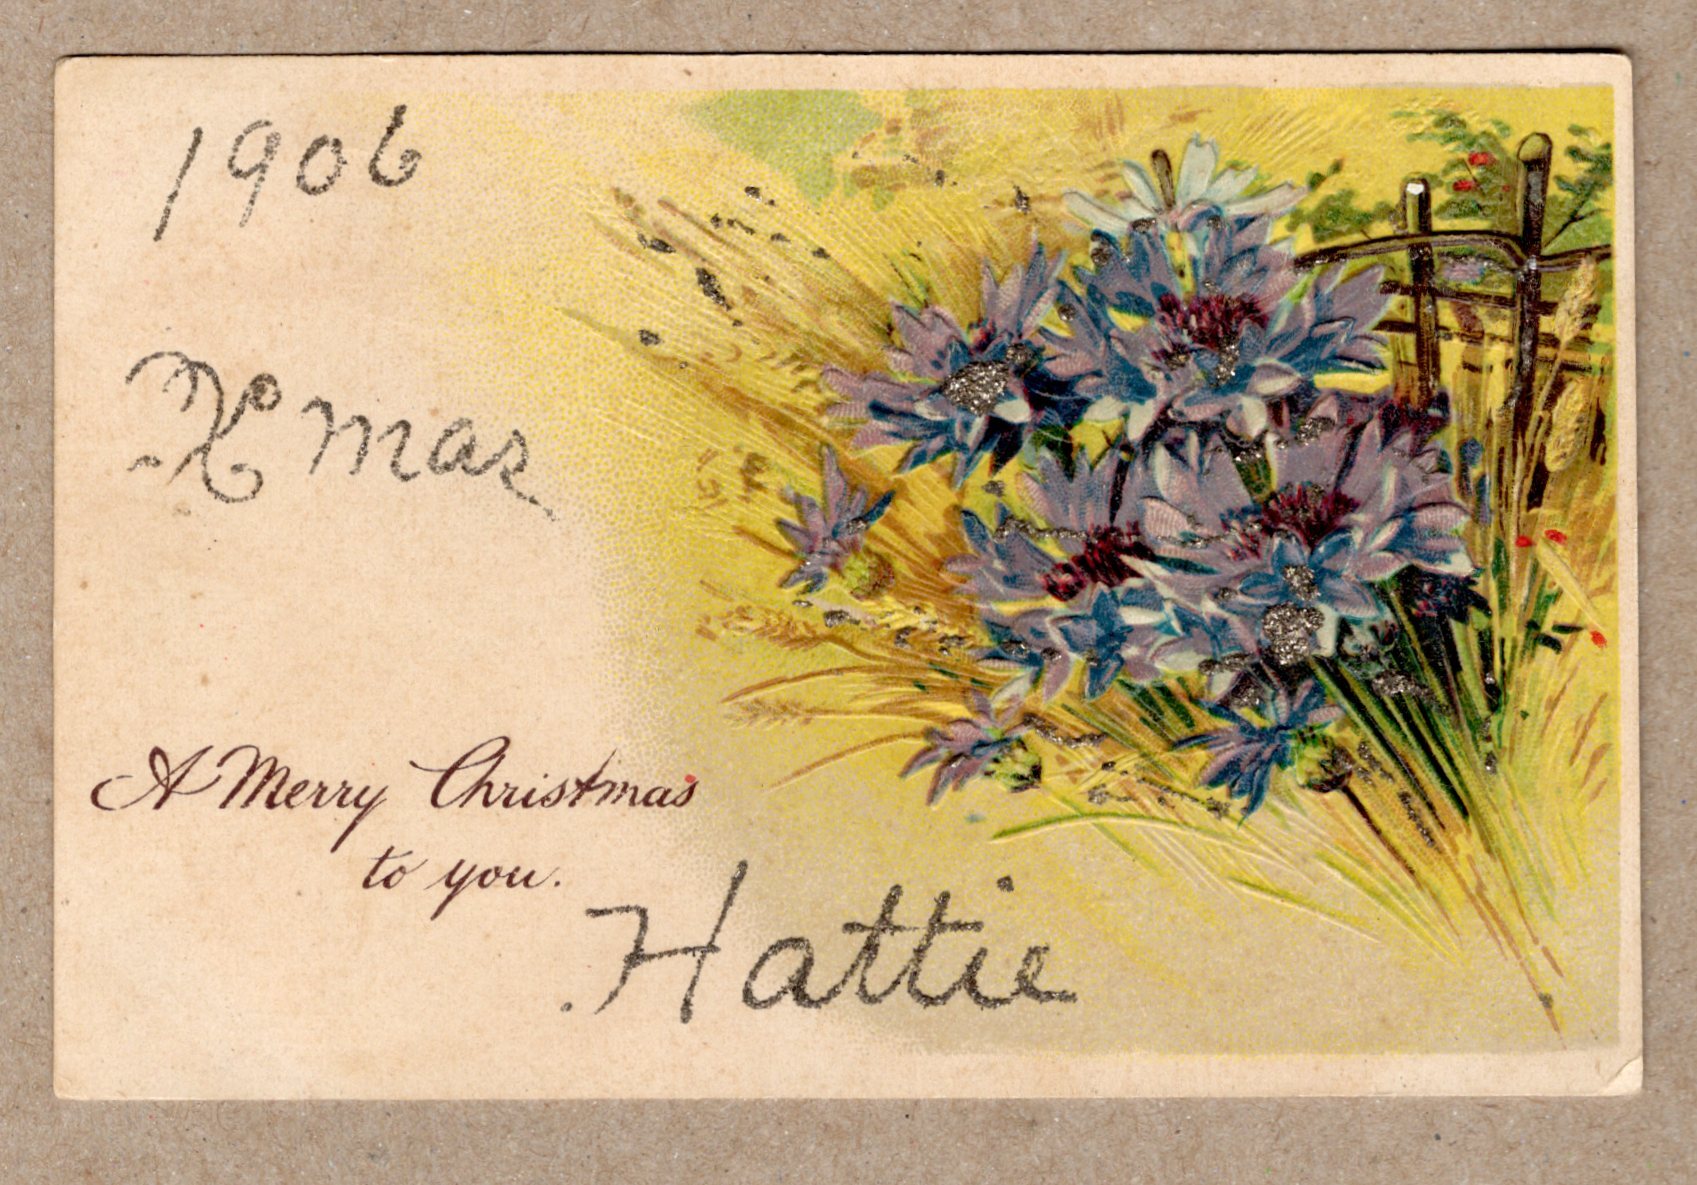 1906
Xmas
A Merry Christmas
to you.
Hattie